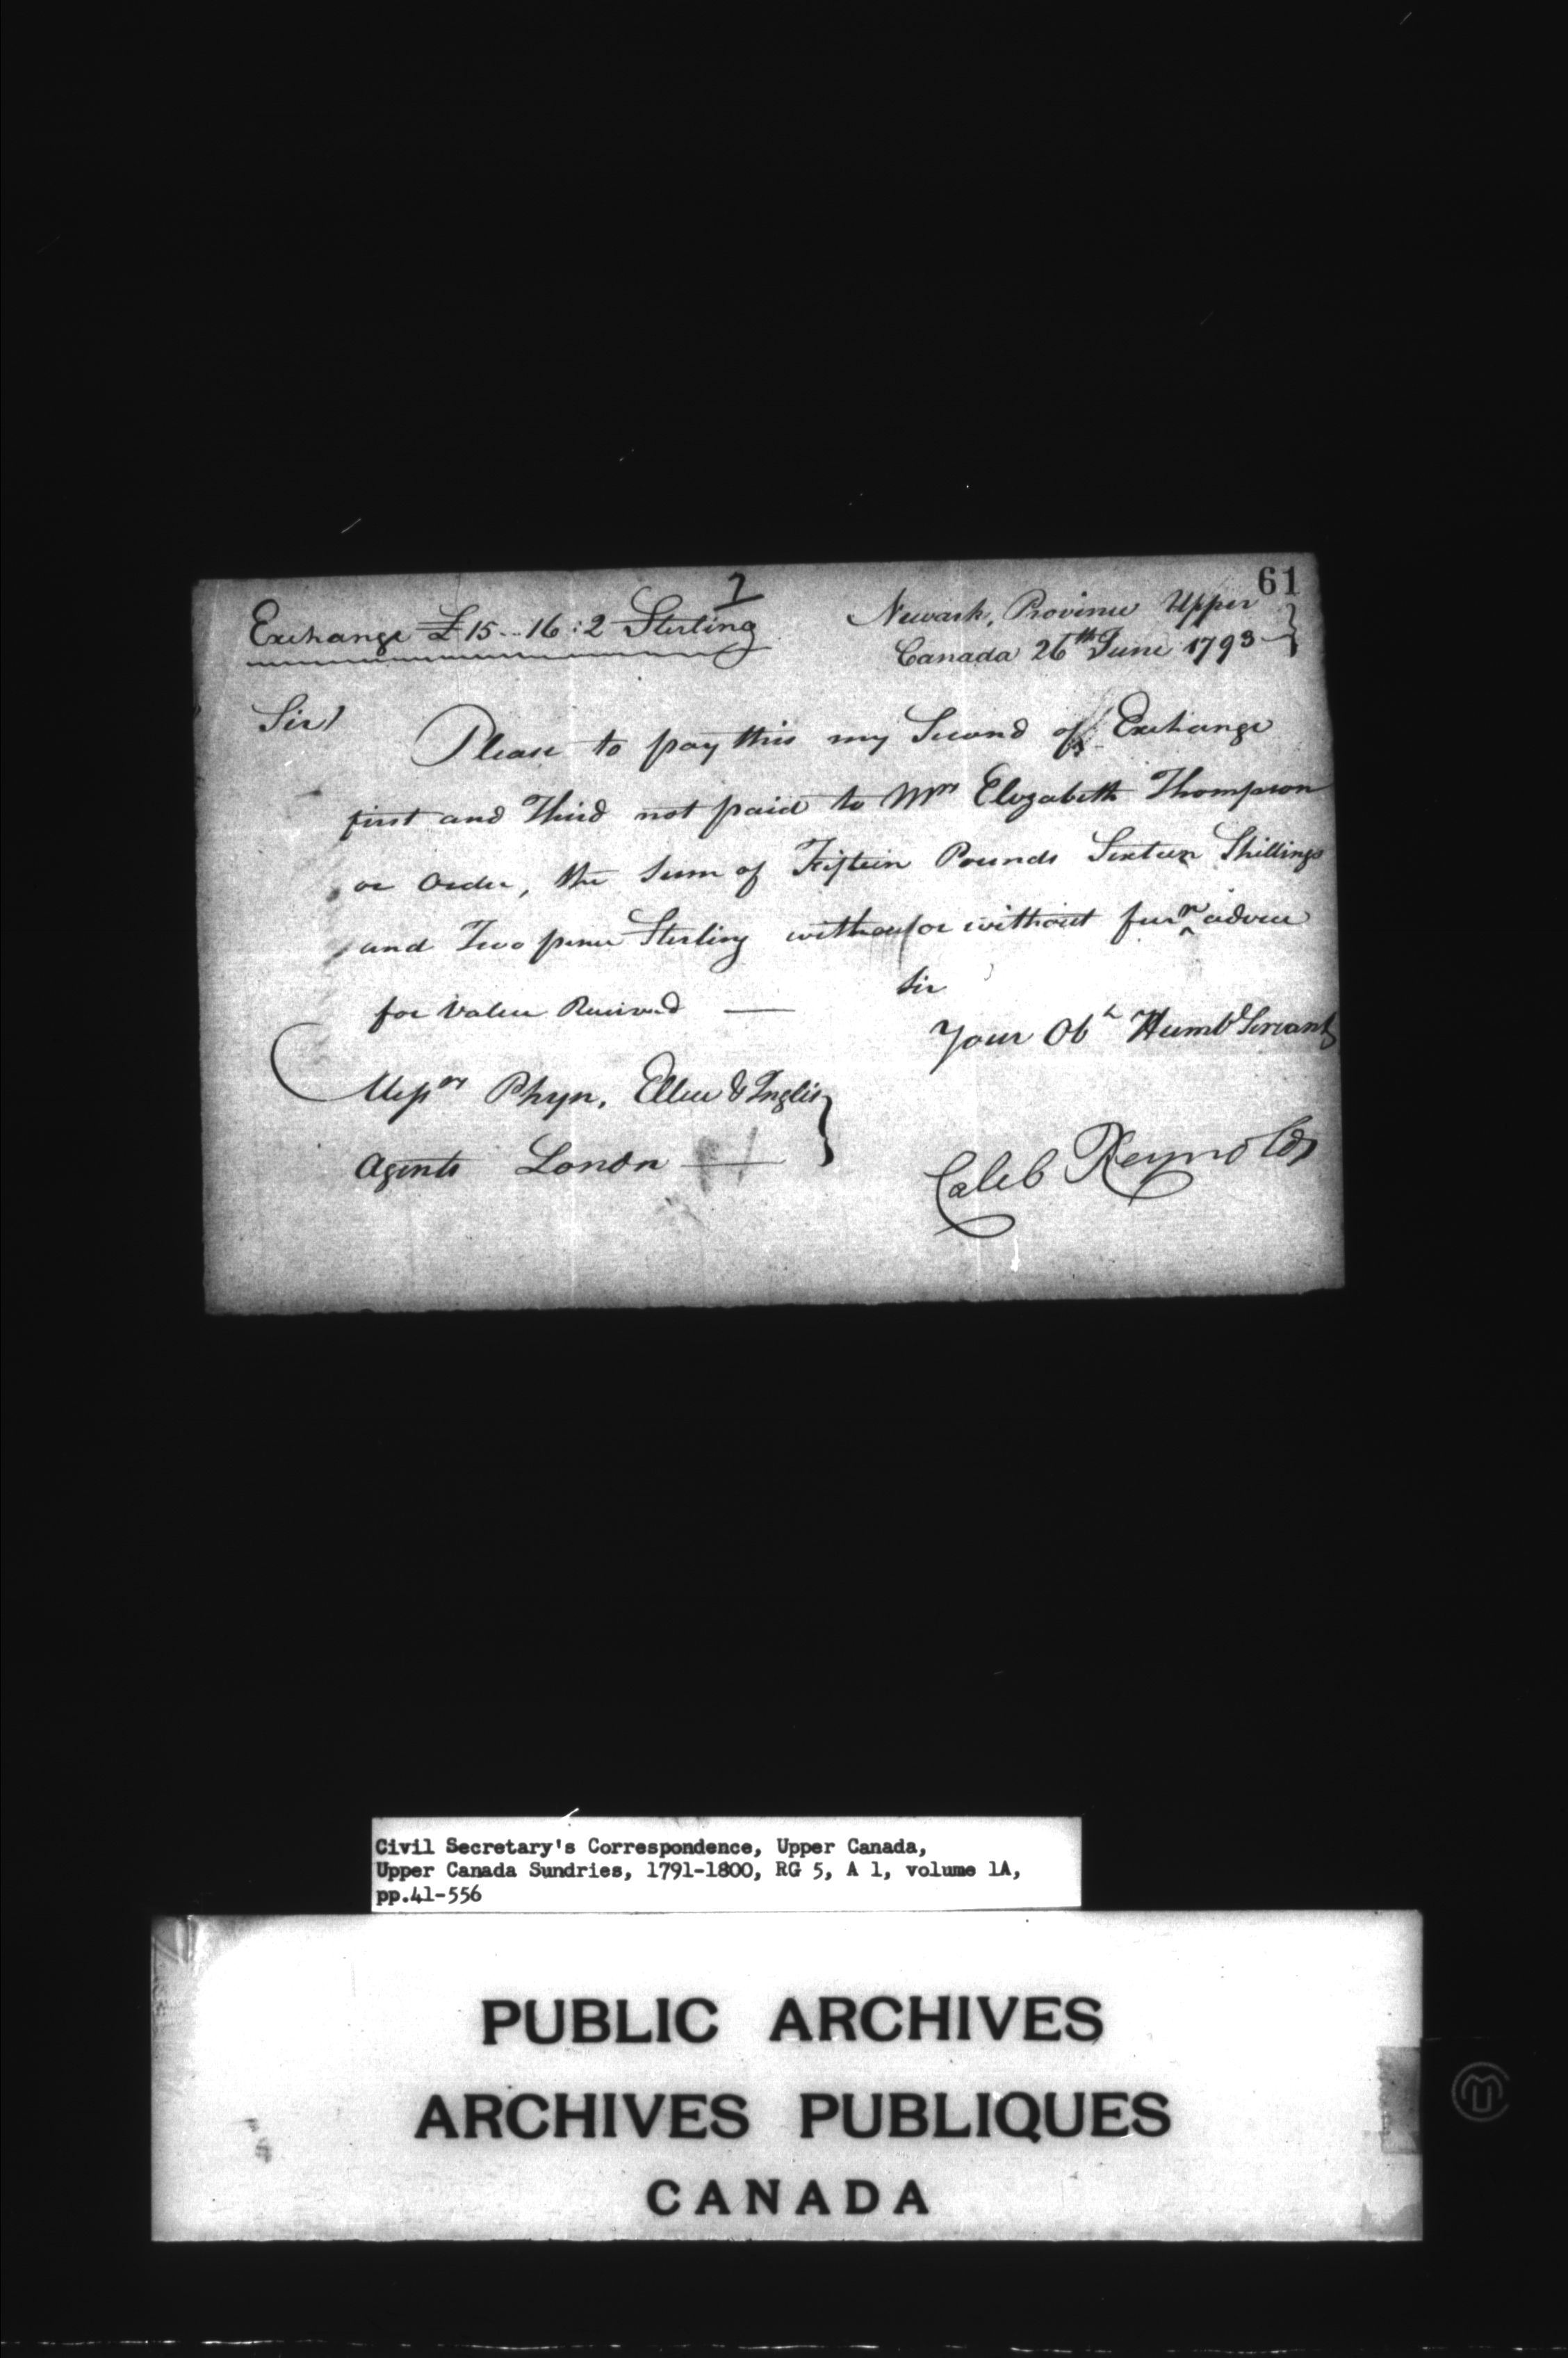 61
7
Exchange £15..16:2 Sterling
Newark, Province Upper
Canada 26th June 1793
Sir/
Please to pay this my Second of Exchange
first and Third not paid to Mrs Elizabeth Thompson
or Order, the Sum of Fifteen Pounds Sixteen Shillings
and Two pence Sterling with or without furr advice
for Value Received —
Sir
Your Obt Humbl Servant
Messrs Phyn, Ellice & Inglis
Agents London
Caleb Reynolds
Civil Secretary's Correspondence, Upper Canada,
Upper Canada Sundries, 1791-1800, RG 5, A 1, volume 1A,
pp.41-556
PUBLIC ARCHIVES
ARCHIVES PUBLIQUES
CANADA